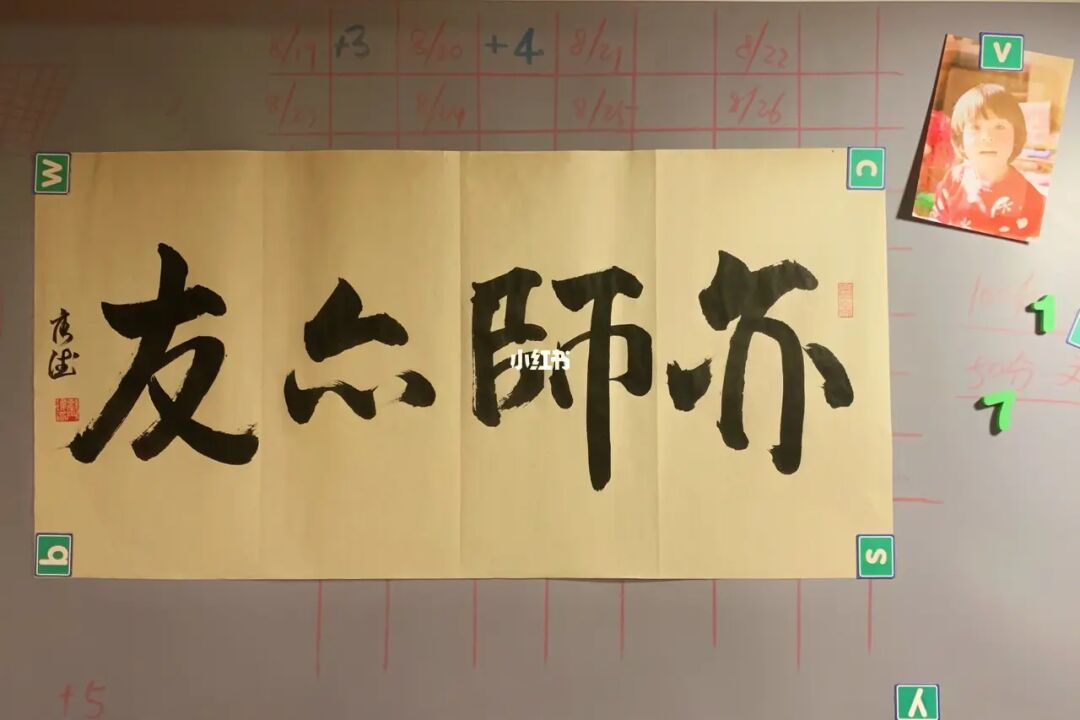 8/19 +3 8/20 +4 8/21 8/22
8/23 8/24 8/25 8/26
V
W
C
亦師亦友
小红书
1
50分
7
b
s
+5
Y